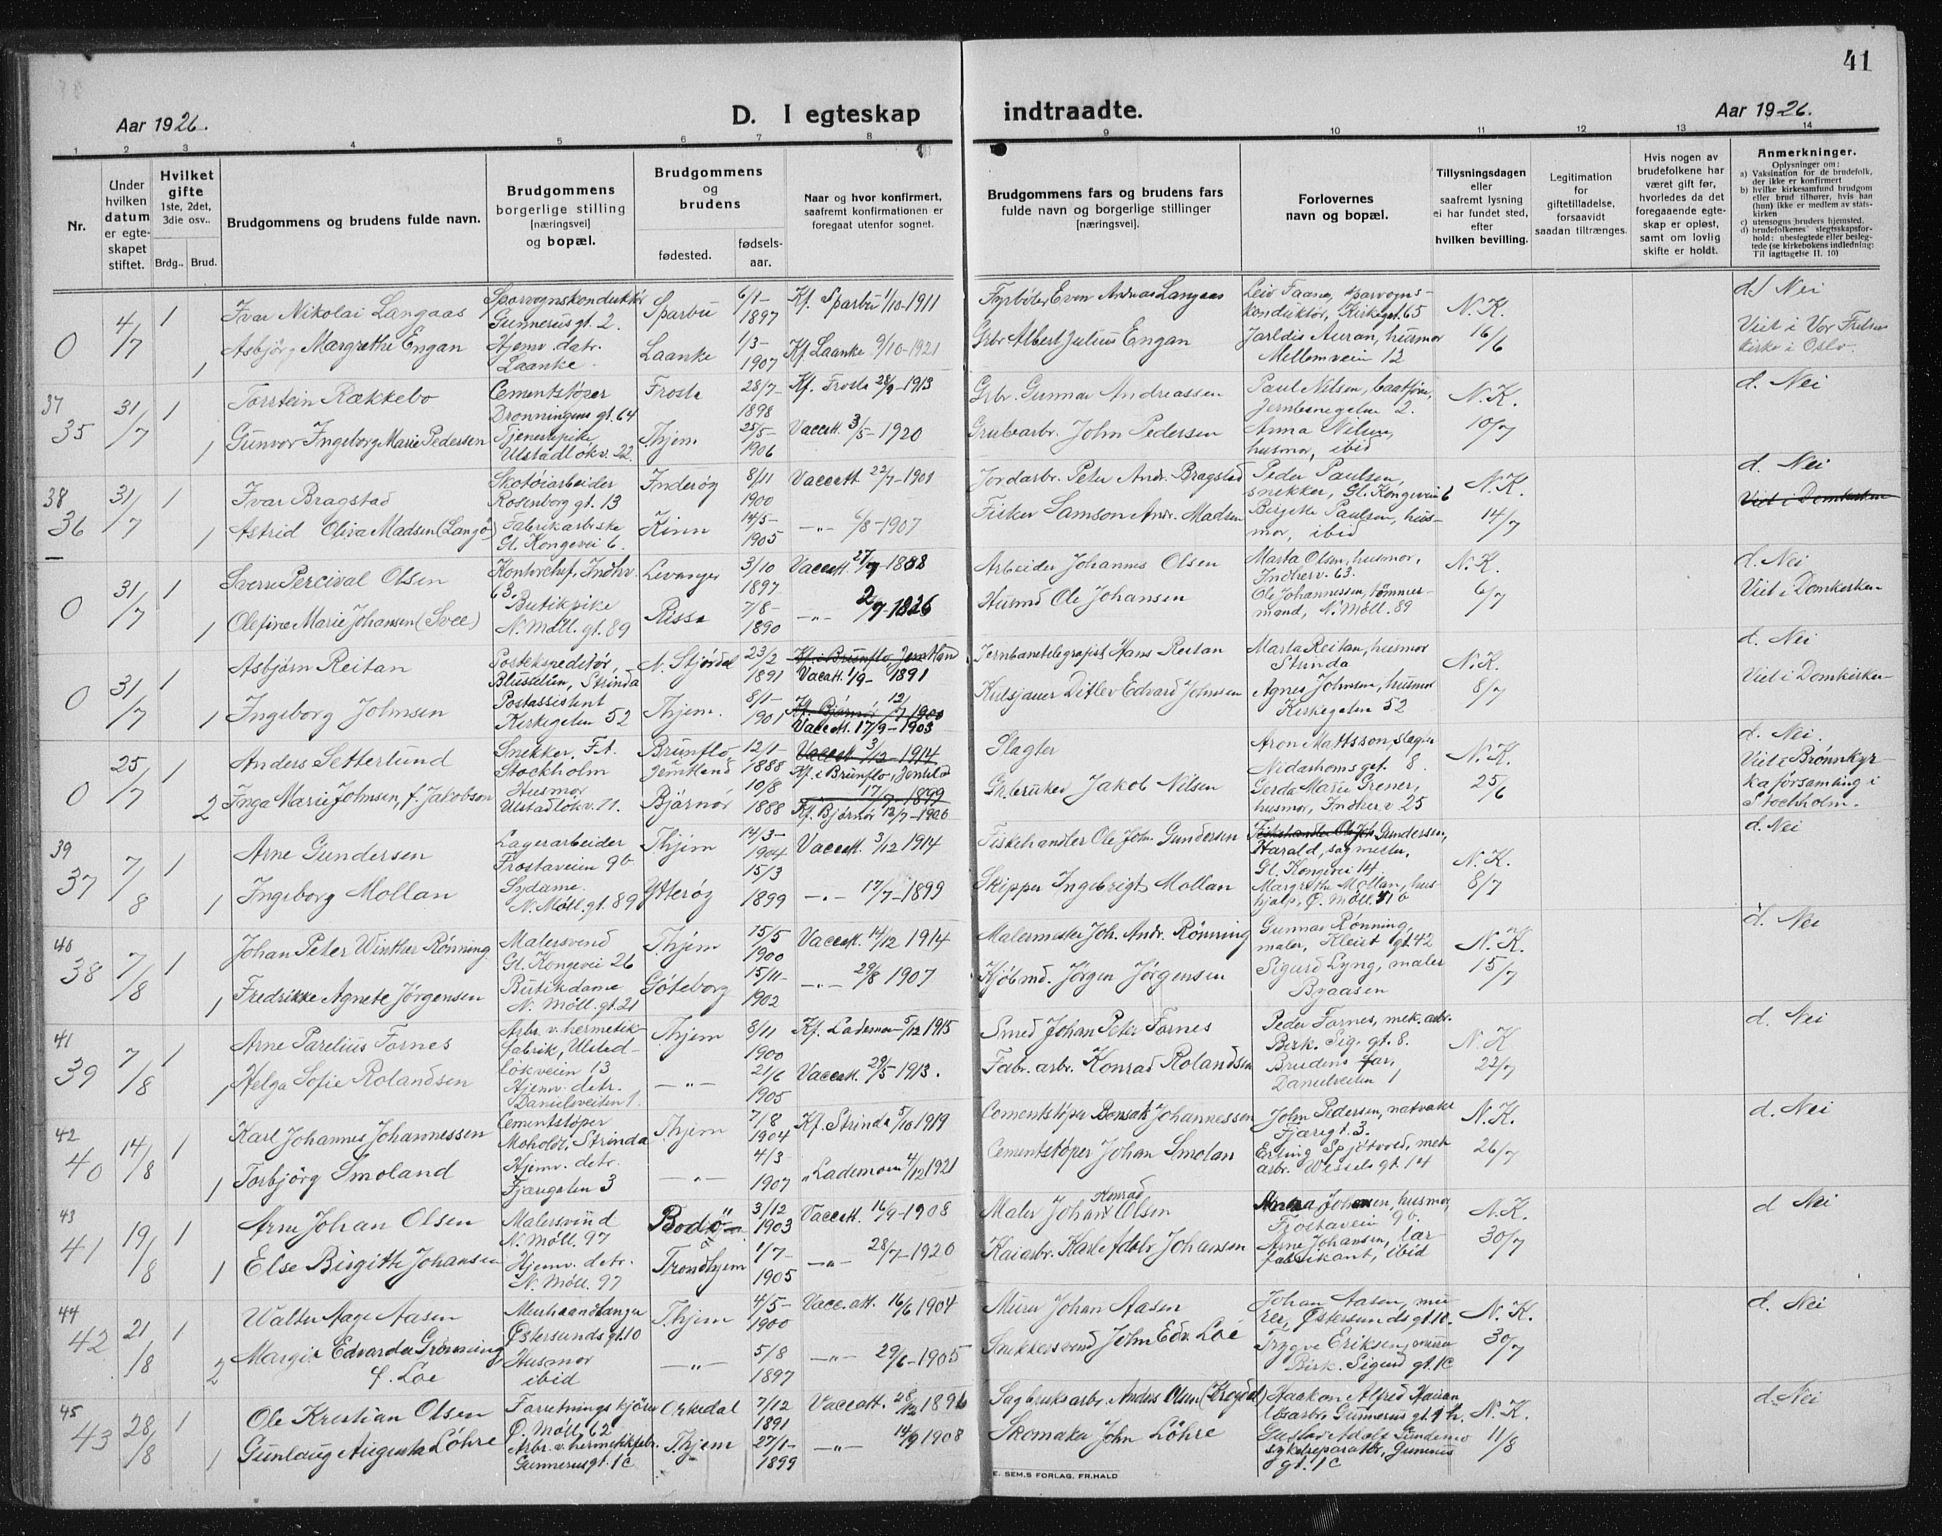 41
Aar 1926.
D. I egteskap indtraadte.
Aar 1926.
1 2 3 4 5 6 7 8 9 10 11 12 13 14
Nr.
Under hvilken datum er egteskapet stiftet.
Hvilket gifte 1ste, 2det, 3die osv..
Brdg.. Brud.
Brudgommens og brudens fulde navn.
Brudgommens borgerlige stilling [næringsvei] og bopæl.
Brudgommens og brudens
fødested. fødselsaar.
Naar og hvor konfirmert, saafremt konfirmationen er foregaat utenfor sognet.
Brudgommens fars og brudens fars fulde navn og borgerlige stillinger [næringsvei].
Forlovernes navn og bopæl.
Tillysningsdagen eller saafremt lysning ei har fundet sted, efter hvilken bevilling.
Legitimation for giftetilladelse, forsaavidt saadan tiltrænges.
Hvis nogen av brudefolkene har været gift før, hvorledes da det foregaaende egteskap er opløst, samt om lovlig skifte er holdt.
Anmerkninger.
Oplysninger om:
a) Vaksination for de brudefolk, der ikke er konfirmert
b) hvilke kirkesamfund brudgom eller brud tilhører, hvis han (hun) ikke er medlem av statskirken
c) utensogns bruders hjemsted.
d) brudefolkenes slegtsskapsforhold: ubeslegtede eller beslegtede (se kirkebokens indledning: Til iagttagelse II. 10)
0 4/7 1 Ivar Nikolai Langaas Sporvognskonduktør Gunnerusgt. 2. Sparbu 6/1-1897 Kf. Sparbu 1/10-1911 Fyrbøter Even Andreas Langaas Leiv Faano, sporvognskonduktør, Kirkegt. 65 N.K. 16/6 d. Nei
1 Asbjørg Margrethe Engan Hjemv. datr. Laanke. Laanke 1/3-1907 Kf. Laanke 9/10-1921 Grbr Albert Julius Engan Jarldis Auran, husmor Mellemveien 12 Viet i Vor Frelsers kirke i Oslo.
37 35 31/7 1 Torstein Rækkebo Cementstøper Dronningens gt. 64 Frosta 28/7-1898 Kf. Frosta 28/9-1913 Grbr. Gunnar Andreassen Paul Nilsen, baatfører, Jernbanegaten 2. N.K. 10/7 d. Nei
1 Gunvor Ingeborg Marie Pedersen Tjenerpike Ulstadløkv. 22. Thjem 25/5-1906 Vaccatt 3/5-1920 Grubearbr. John Pedersen Anna Nilsen, husmor, ibid
38 36 31/7 1 Ivar Bragstad Skotøiarbeider Rosenborg gt. 13 Inderøy 8/11 1900 Vaccatt 22/7-1901 Jordarbr. Peter Andr. Bragstad Peder Paulsen, snekker, Gl. Kongevei 6 N.K. 14/7 d. Nei
1 Astrid Oliva Madsen (Langø) Fabrikarbeiderske Gl. Kongevei 6. Kinn 14/5-1905 -„- 6/8-1907 Fisker Samson Andr. Madsen Birjitte Paulsen, husmor, ibid Viet i Domkirken
0 31/7 1 Sverre Percival Olsen Kontorchef, Indhv. 63. Levanger 3/10 1897 Vaccatt. 27/7-1888 Arbeider Johannes Olsen Marta Olsen, husmor, Indherv. 63. N.K. 6/7 d. Nei
1 Olefine Marie Johansen (Svee) Butikpike N. Möll. gt. 89 Rissa 7/8-1890 -„- 2/7-1826 Husmd Ole Johansen Ole Johannessen, tømmermand, N. Möll. 89 Viet i Domkirken
0 31/7 1 Asbjørn Reitan Postekspeditør, Blusuveien, Strinda N. Stjørdal 23/2 1891 Kf. i Brunflo Jemtland Vacatt. 1/9-1891 Jernbanetelegrafist Hans Reitan Marta Reitan, husmor Strinda N.K. 8/7 d. Nei
1 Ingeborg Johnsen Postassistent Kirkegaten 52 Thjem. 8/1-1901 Kf. Bjørnør 12/7 1900 Vaccatt. 17/9-1903 Kulsjauer Ditlev Edvard Johnsen Agnes Johnsen, husmor Kirkegaten 52 Viet i Domkirken
0 25/7 1 Anders Setterlund Snekker, F.t. Stockholm Brunflo Jemtland 12/1-1888 Vaccatt 3/12-1914 Kf. i Brunflo, Jemtld Slagter Aron Mattsson, slagter Nidarholmsgt. 8. N.K. 25/6 d. Nei.
2 Inga Marie Johnsen, f. Jakobson Husmor Ulstadløkv. 11. Bjørnør 10/8 1888 17/7-1899 Kf. Bjørnør 12/7-1906 Gbruker Jakob Nilsen Gerda Marie Grener, husmor, Indherv. 25 Viet i Brønnkyrkaförsamling i Stockholm.
39 37 7/8 1 Arne Gundersen Lagerarbeider Frostaveien 9b Thjem 14/3-1904 Vaccatt 3/12 1914 Fiskehandler Ole Joh. Gundersen Fiskehandler Ole Joh Gundersen, Harald, sagmester, Gl. Kongevei 14, N.K. 8/7 d. Nei
1 Ingeborg Mollan Sydame N. Möll. gt. 89 Ytterøy 15/3 1899 -„- 17/7-1899 Skipper Ingebrigt Mollan Margrethe Mollan, hushjelp, Ø. Möll. 51b
40 38 7/8 1 Johan Peter Winther Rønning Malersvend Gl. Kongevei 26 Thjem 15/5 1900 Vaccatt 14/12 1914 Malermester Joh. Andr. Rønning Gunnar Rønning, maler, Kleist gt. 42 N.K. 15/7 d. Nei
1 Fredrikke Agnete Jørgensen Butikdame N. Möll. gt. 21 Göteborg 15/11-1902 -„- 29/8 1907 Kjøbmd. Jørgen Jørgensen Sigurd Lyng, maler Byaasen
41 39 7/8 1 Arne Parelius Fornes Arbr. v. hermetikfabrik, Ulstadløkveien 13 Thjem 8/11 1900 Kf. Lademoen 5/12 1915 Smed Johan Peter Fornes Peder Fornes, mek. arbr. Birk. Sig. gt. 8. N.K. 22/7 d. Nei
1 Helga Sofie Rolandsen Hjemv. datr. Danielsveiten 1. -„- 21/6 1905 Vaccatt. 29/5 1913. Fabr. arbr. Konrad Rolandsen Brudens far, Danielsveiten 1
42 40 14/8 1 Karl Johannes Johannessen Cementstøper Moholdt, Strinda Thjem 7/8 1904 Kf. Strinda 5/10 1919 Cementstøper Bonsak Johannessen John Pedersen, natvakt Fjæregt. 3. N.K. 26/7 d. Nei
1 Torbjørg Smoland Hjemv. datr. Fjæregaten 3 -„- 4/3-1907 „ Lademoen 4/12 1921 Cementstøper Johan Smolan Erling Spjøtvold, mek. arbr. Wesselsgt. 14
43 41 19/8 1 Arne Johan Olsen Malersvend N. Möll. 97 Bodø 3/12 1903 Vaccatt. 16/9-1908 Maler Johan Konrad Olsen Anna Johansen, husmor, Frostaveien 9b. N.K. 30/7 d Nei
1 Else Birgithe Johansen Hjemv. datr. N. Möll. 97 Trondhjem 1/7-1905 -„- 28/7-1920 Kaiarbr. Karl Adolv Johansen Arne Johansen, ibid
44 42 21/8 1 Walter Aage Aasen Murhaandlanger Østersunds gt. 10 Thjem 4/5-1900 Vacc. att. 16/6 1904 Murer Johan Aasen Johan Aasen, murer, Østersunds gt. 10. N.K. 30/7 d. Nei
2 Margit Edvarda Grønning f. Loe Husmor ibid -„- 5/8 1897 -„- 29/6-1905 Snekkersvend John Edv. Loe Trygve Eriksen, murer Birk. Sigurd gt. 1c
45 43 28/8 1 Ole Kristian Olsen Forretningskjører Ø. Möll 62 Orkedal 7/12 1891 Vaccatt. 28/12 1896 Sagbruksarbr. Anders Olsen Haakon Alfred Gunnerus gt. N.K. 11/8 d. Nei
1 Gunlaug Augusta Löhre Arbr. v. hermetikfabr. Gunnerusgt. 1c Thjem 27/1-1899 -„- 14/9 1908 Skomaker John Löhre Gustav Adolf Sundemo sykkelreparatør, Gunnerus gt. 1c
E. SEM.S FORLAG, FR.HALD